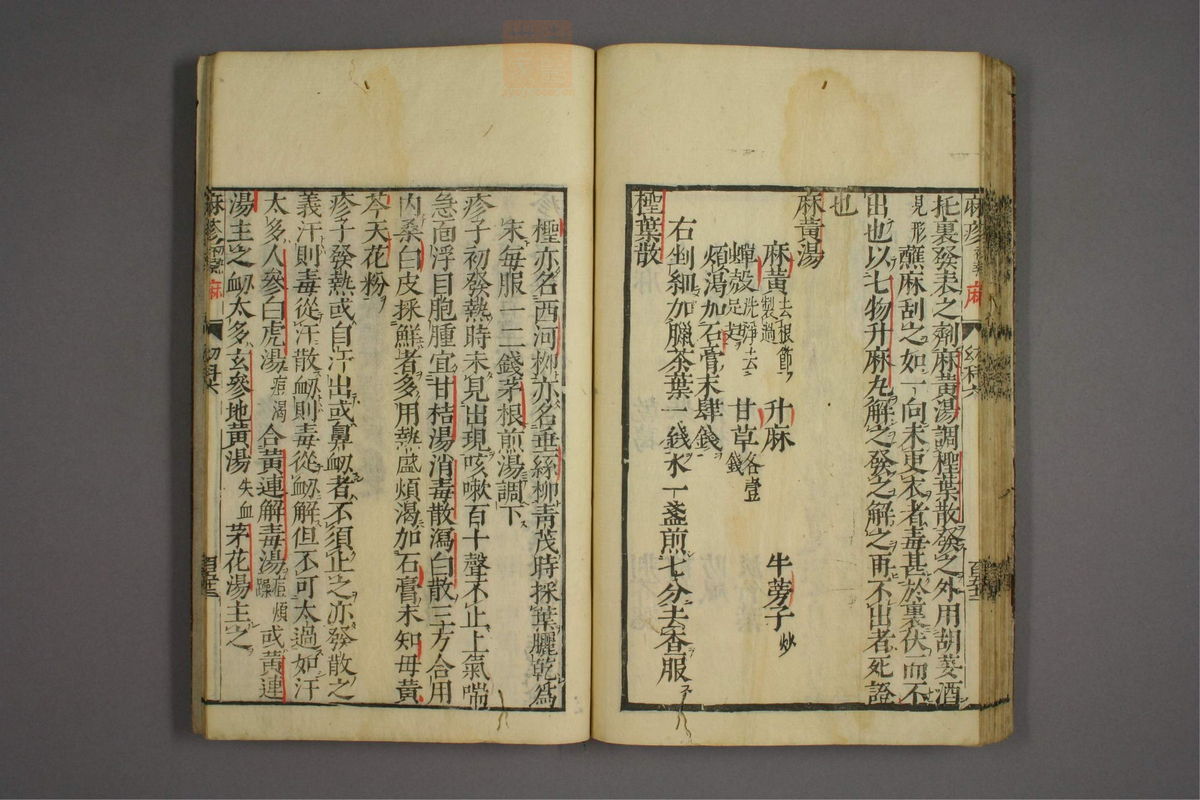 托裏發表之劑麻黃湯調檉葉散發之外用胡荽酒
見形蘸麻刮之如一向未更衣者毒甚於裏伏而不
出也以七物升麻丸解之發之解之再不出者死證
也
麻黃湯
麻黃去根節製過 升麻 牛蒡子炒
蟬殼洗淨去足翅 甘草各壹錢
煩渴加石膏末肆錢
右剉細加臘茶葉一錢水一盞煎七分去香服
檉葉散
檉亦名西河柳亦名垂絲柳青茂時採葉曬乾為
末每服一二錢茅根煎湯調下
疹子初發熱時未見出現咳嗽百十聲不止上氣喘
急面浮目胞腫宜甘桔湯消毒散瀉白散三方合用
內桑白皮採鮮者多用熱盛煩渴加石膏末知母黃
芩天花粉
疹子發熱或自汗出或鼻衂者不須止之亦發散之
義汗則毒從汗散衂則毒從衂解但不可太過如汗
太多人參白虎湯痘渴合黃連解毒湯痘煩躁或黃連
湯主之衂太多玄參地黃湯失血茅花湯主之
麻疹
麻